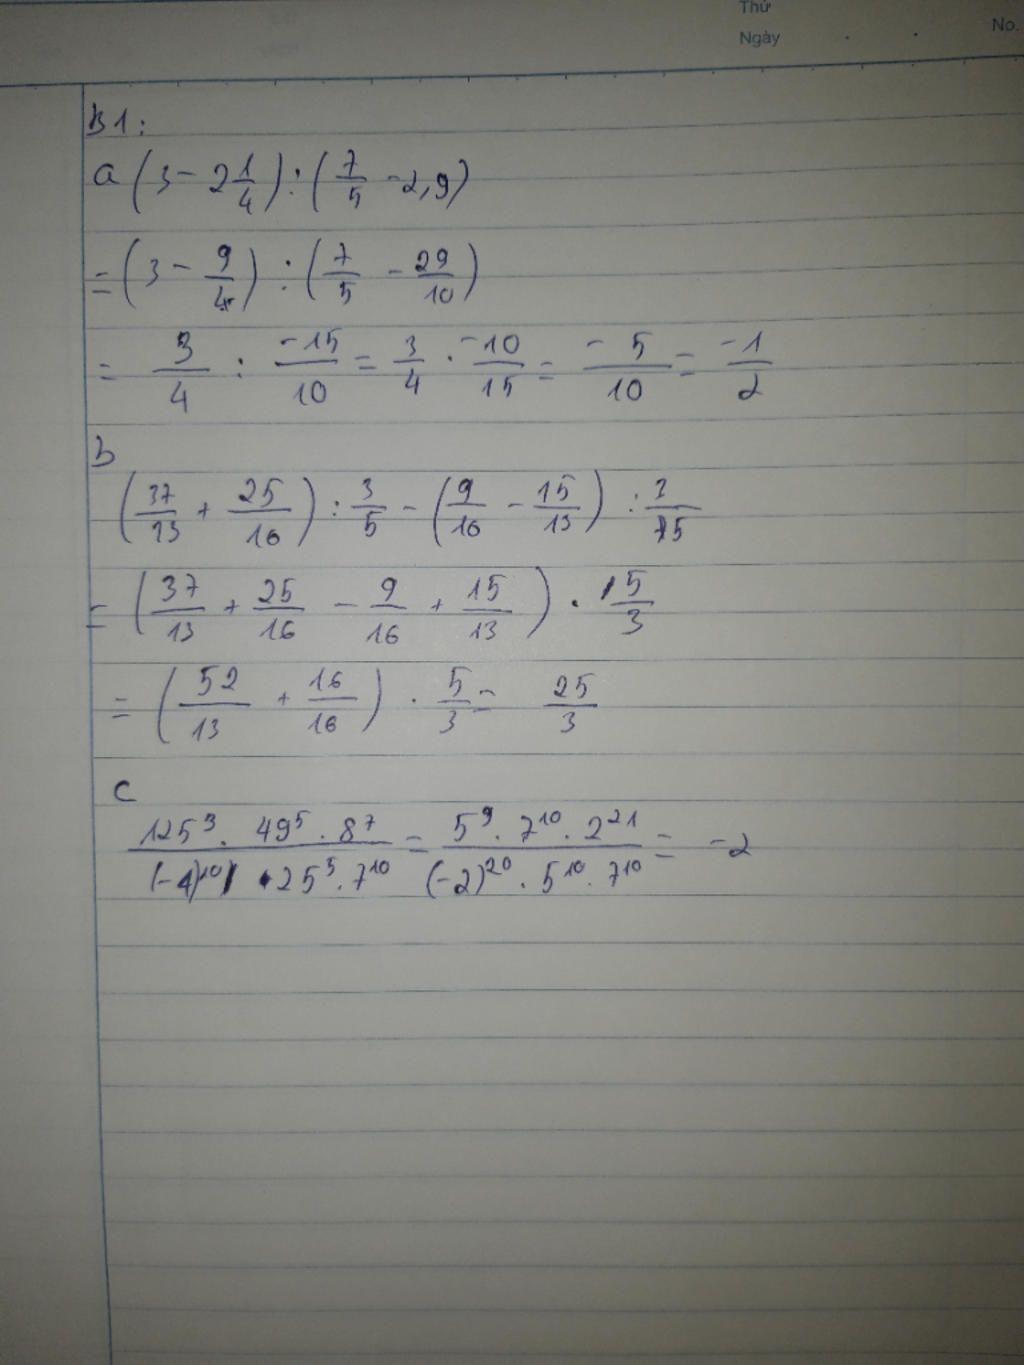 Thứ
Ngày . . No.
B1:
a (3 - 2 1/4) : (7/5 - 2,9)
= (3 - 9/4) : (7/5 - 29/10)
= 3/4 : -15/10 = 3/4 . -10/15 = -5/10 = -1/2
b
(37/13 + 25/16) : 3/5 - (9/16 - 15/13) : 3/5
= (37/13 + 25/16 - 9/16 + 15/13) . 5/3
= (52/13 + 16/16) . 5/3 = 25/3
c
125³ . 49⁵ . 8⁷ / (-4)¹⁰ . 25⁵ . 7¹⁰ = 5⁹ . 7¹⁰ . 2²¹ / (-2)²⁰ . 5¹⁰ . 7¹⁰ = -2